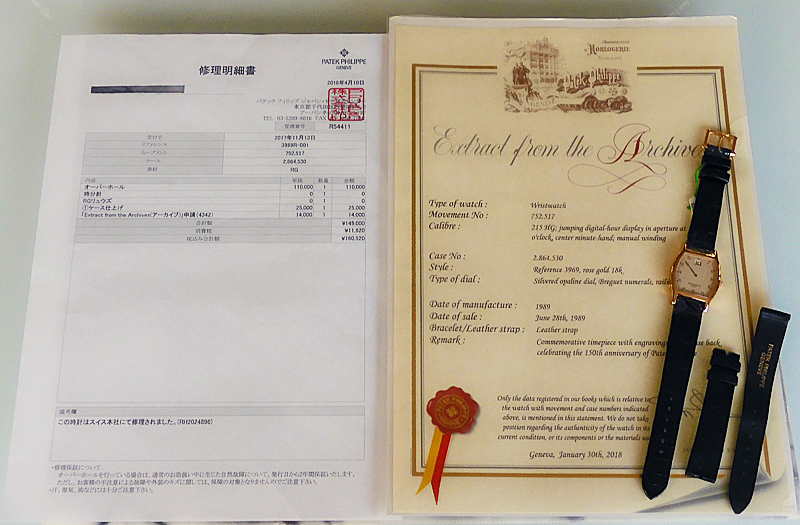 PATEK PHILIPPE
GENEVE
修理明細書
2018年4月10日
パテック フィリップ ジャパン・
東京都千代
アーバンネ
TEL 03-5209-8016 FAX
管理番号 R54411
受付日 2017年11月13日
リファレンス 3969R-001
ムーブメント 752,517
ケース 2,864,530
素材 RG
内容 単価 数量 金額
オーバーホール 110,000 1 110,000
時分針 0 1 0
RGリュウズ 0 1 0
①ケース仕上げ 25,000 1 25,000
「Extract from the Archives(アーカイブ)」申請 (4342) 14,000 1 14,000
合計額 ¥149,000
消費税 ¥11,920
税込み合計額 ¥160,920
備考欄
この時計はスイス本社にて修理されました。(RH2024896)
・修理保証について
オーバーホールを行っている場合は、通常のお取扱い中に生じた自然故障について、発行日から2年間保証いたします。
ただし、お客様の不注意による故障や外装のキズに関しては、保障の対象となりませんのでご注意下さい。
・汗、湿気、埃などには十分ご注意下さい。
HORLOGERIE
Patek Philippe
GENÈVE
Extract from the Archives
Type of watch : Wristwatch
Movement No : 752.517
Calibre : 215 HG; jumping digital-hour display in aperture at
o'clock, center minute-hand; manual winding
Case No : 2.864.530
Style : Reference 3969, rose gold 18k
Type of dial : Silvered opaline dial, Breguet numerals,
Date of manufacture : 1989
Date of sale : June 28th, 1989
Bracelet/Leather strap : Leather strap
Remark : Commemorative timepiece with engraving back,
celebrating the 150th anniversary of Patek
Only the data registered in our books which is relative to
the watch with movement and case numbers indicated
above, is mentioned in this statement. We do not take
position regarding the authenticity of the watch in its
current condition, or its components or the materials
Geneva, January 30th, 2018
PATEK PHILIPPE
GENEVE